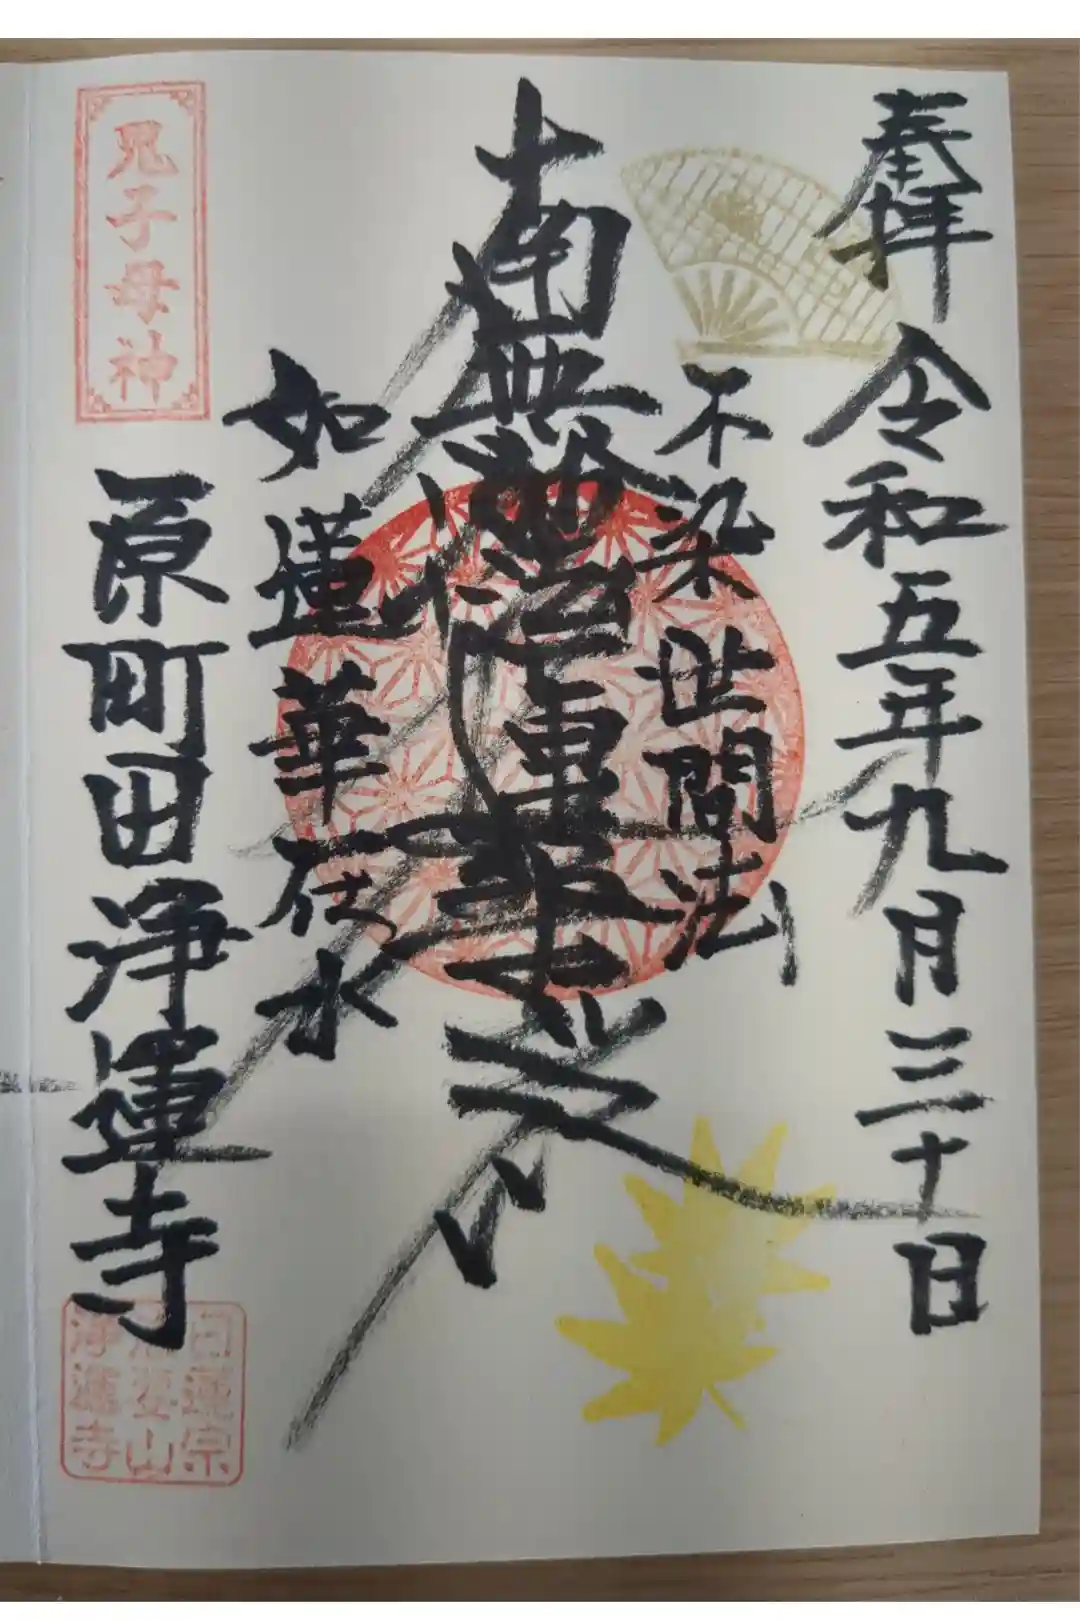 奉拝
令和五年九月三十日
不染世間法
南無妙法蓮華経
如蓮華在水
鬼子母神
原町田浄運寺
日蓮宗
山
浄運寺